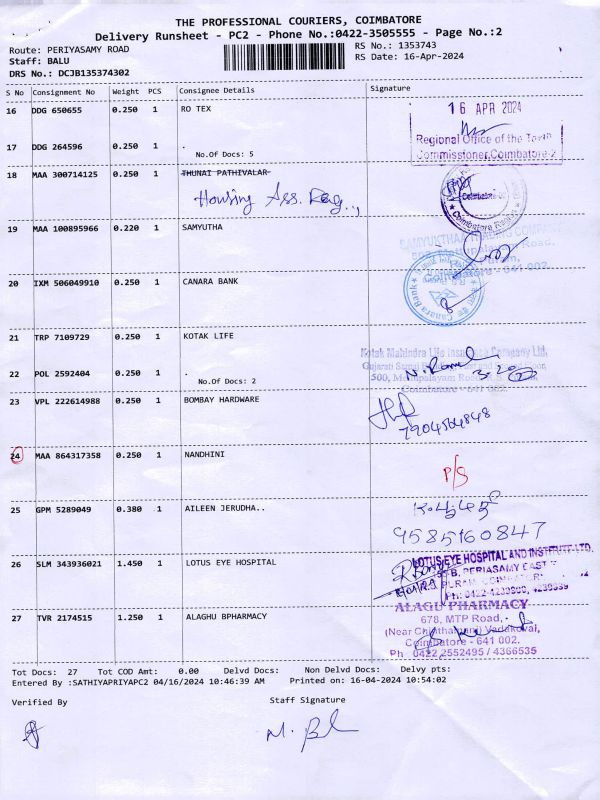 THE PROFESSIONAL COURIERS, COIMBATORE
Delivery Runsheet - PC2 - Phone No.:0422-3505555 - Page No.:2
Route: PERIYASAMY ROAD
RS No.: 1353743
Staff: BALU
RS Date: 16-Apr-2024
DRS No.: DCJB135374302
S No Consignment No Weight PCS Consignee Details Signature
16 DDG 650655 0.250 1 RO TEX
16 APR 2024
Regional Office of the
Commissioner, Coimbatore-2
17 DDG 264596 0.250 1 .
No.Of Docs: 5
18 MAA 300714125 0.250 1 THUNAI PATHIVALAR
Housing Ass. Reg..,
19 MAA 100895966 0.220 1 SAMYUTHA
Coimbatore - 641 002.
20 IXM 506049910 0.250 1 CANARA BANK
Canara Bank
21 TRP 7109729 0.250 1 KOTAK LIFE
Kotak Mahindra Life Insurance Company Ltd,
22 POL 2592404 0.250 1 .
No.Of Docs: 2
500, Mettupalayam Road,
Coimbatore - 641 002.
23 VPL 222614988 0.250 1 BOMBAY HARDWARE
7904564848
24 MAA 864317358 0.250 1 NANDHINI
P/S
25 GPM 5289049 0.380 1 AILEEN JERUDHA..
9585160847
26 SLM 343936021 1.450 1 LOTUS EYE HOSPITAL
LOTUS EYE HOSPITAL AND INSTITUTE LTD.
PERIASAMY EAST
27 TVR 2174515 1.250 1 ALAGHU BPHARMACY
ALAGU PHARMACY
678, MTP Road,
Vadakovai,
Coimbatore - 641 002.
Ph 0422 2552495 / 4366535
Tot Docs: 27 Tot COD Amt: 0.00 Delvd Docs: Non Delvd Docs: Delvy pts:
Entered By :SATHIYAPRIYAPC2 04/16/2024 10:46:39 AM Printed on: 16-04-2024 10:54:02
Verified By Staff Signature